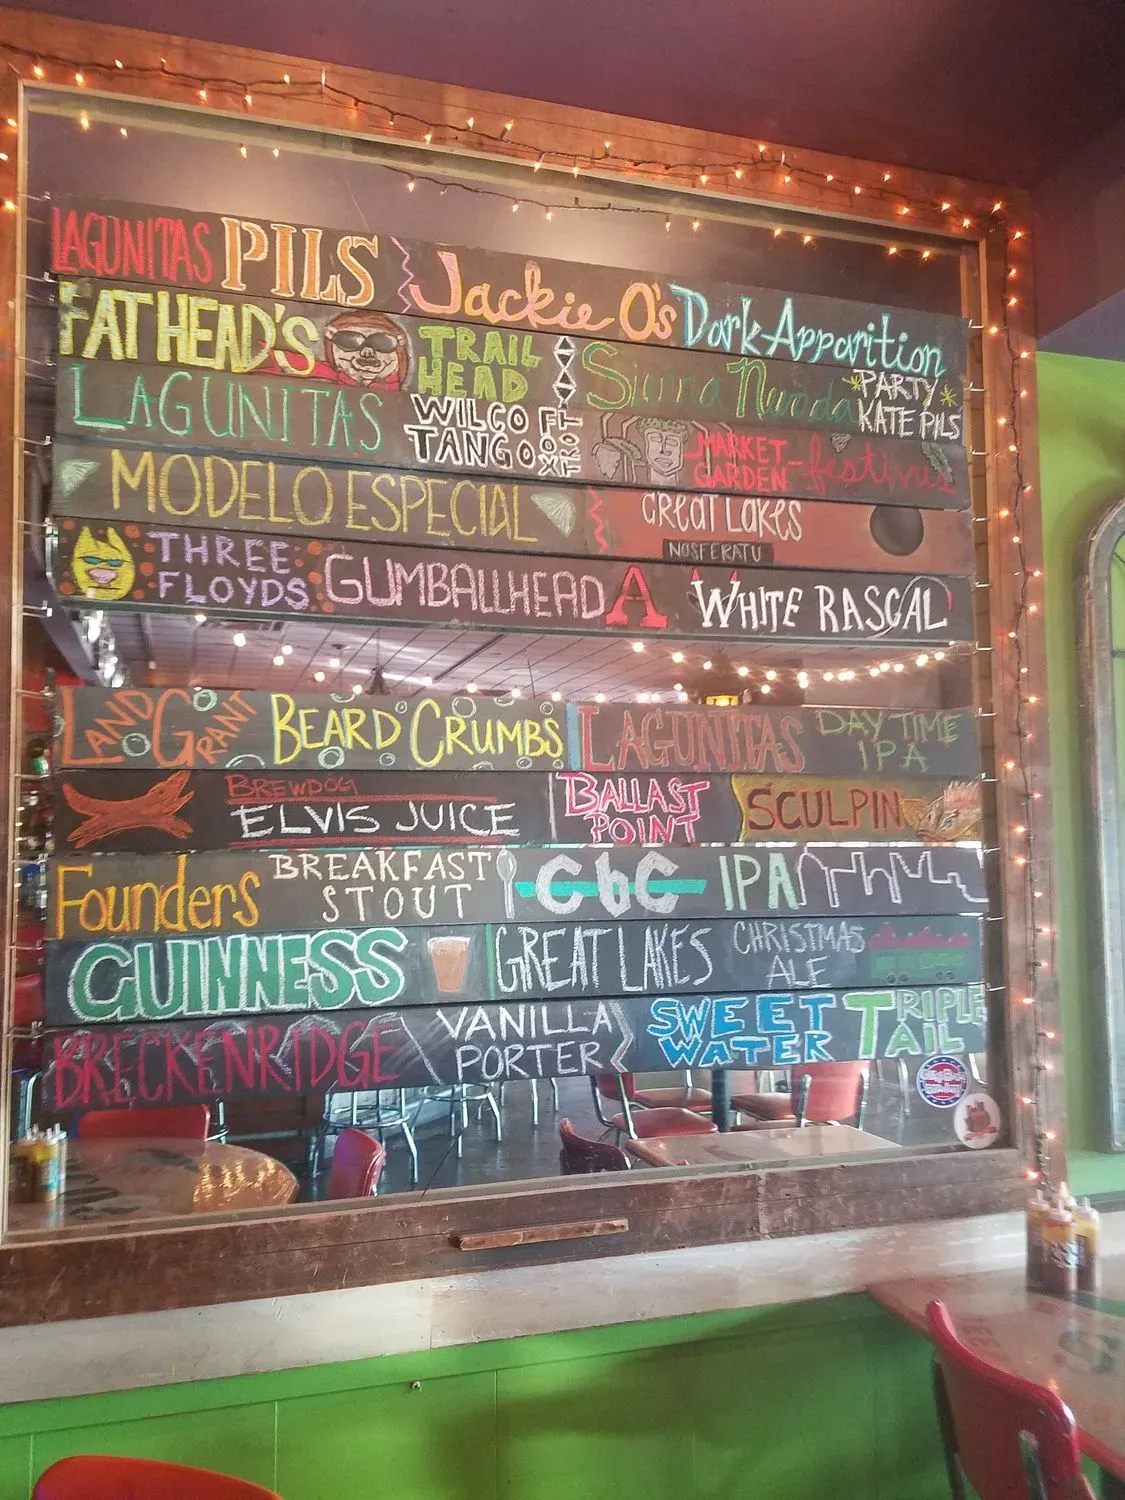 LAGUNITAS PILS Jackie O's Dark Apparition
FATHEAD'S TRAIL HEAD Sierra Nevada PARTY KATE PILS
LAGUNITAS WILCO TANGO FOXTROT MARKET GARDEN - festivus
MODELO ESPECIAL GREAT LAKES NOSFERATU
THREE FLOYDS GUMBALLHEAD A WHITE RASCAL
LAND GRANT BEARD CRUMBS LAGUNITAS DAY TIME IPA
BREWDOG ELVIS JUICE BALLAST POINT SCULPIN
Founders BREAKFAST STOUT CbC IPA
GUINNESS GREAT LAKES CHRISTMAS ALE
BRECKENRIDGE VANILLA PORTER SWEET WATER TRIPLE TAIL